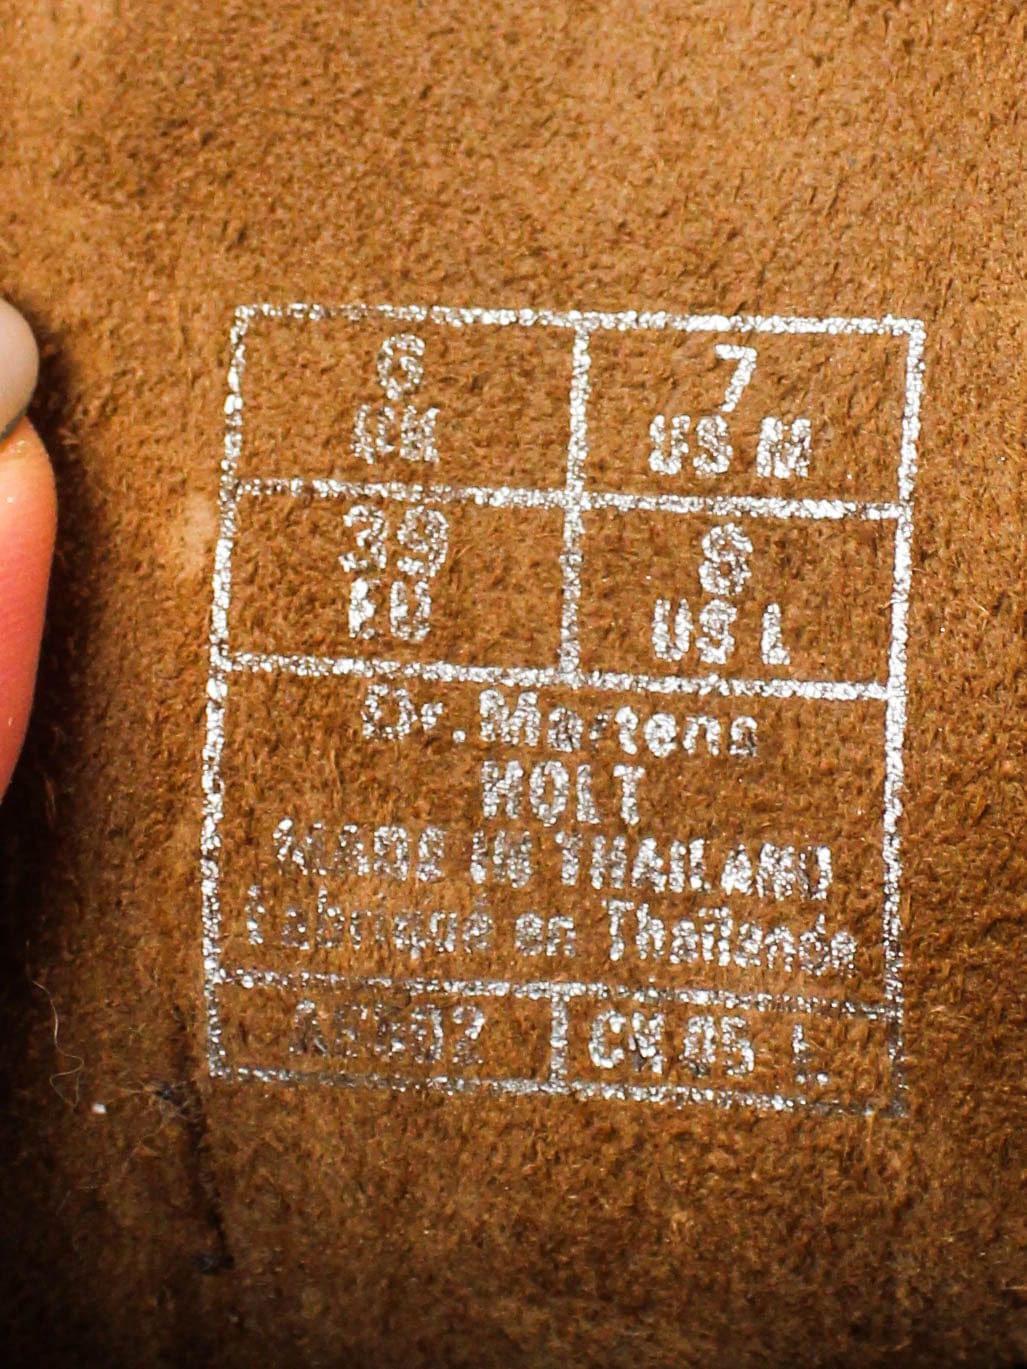 6
UK
7
US M
39
EU
8
US L
Dr. Martens
HOLT
MADE IN THAILAND
Fabriqué en Thaïlande
CN 05 L